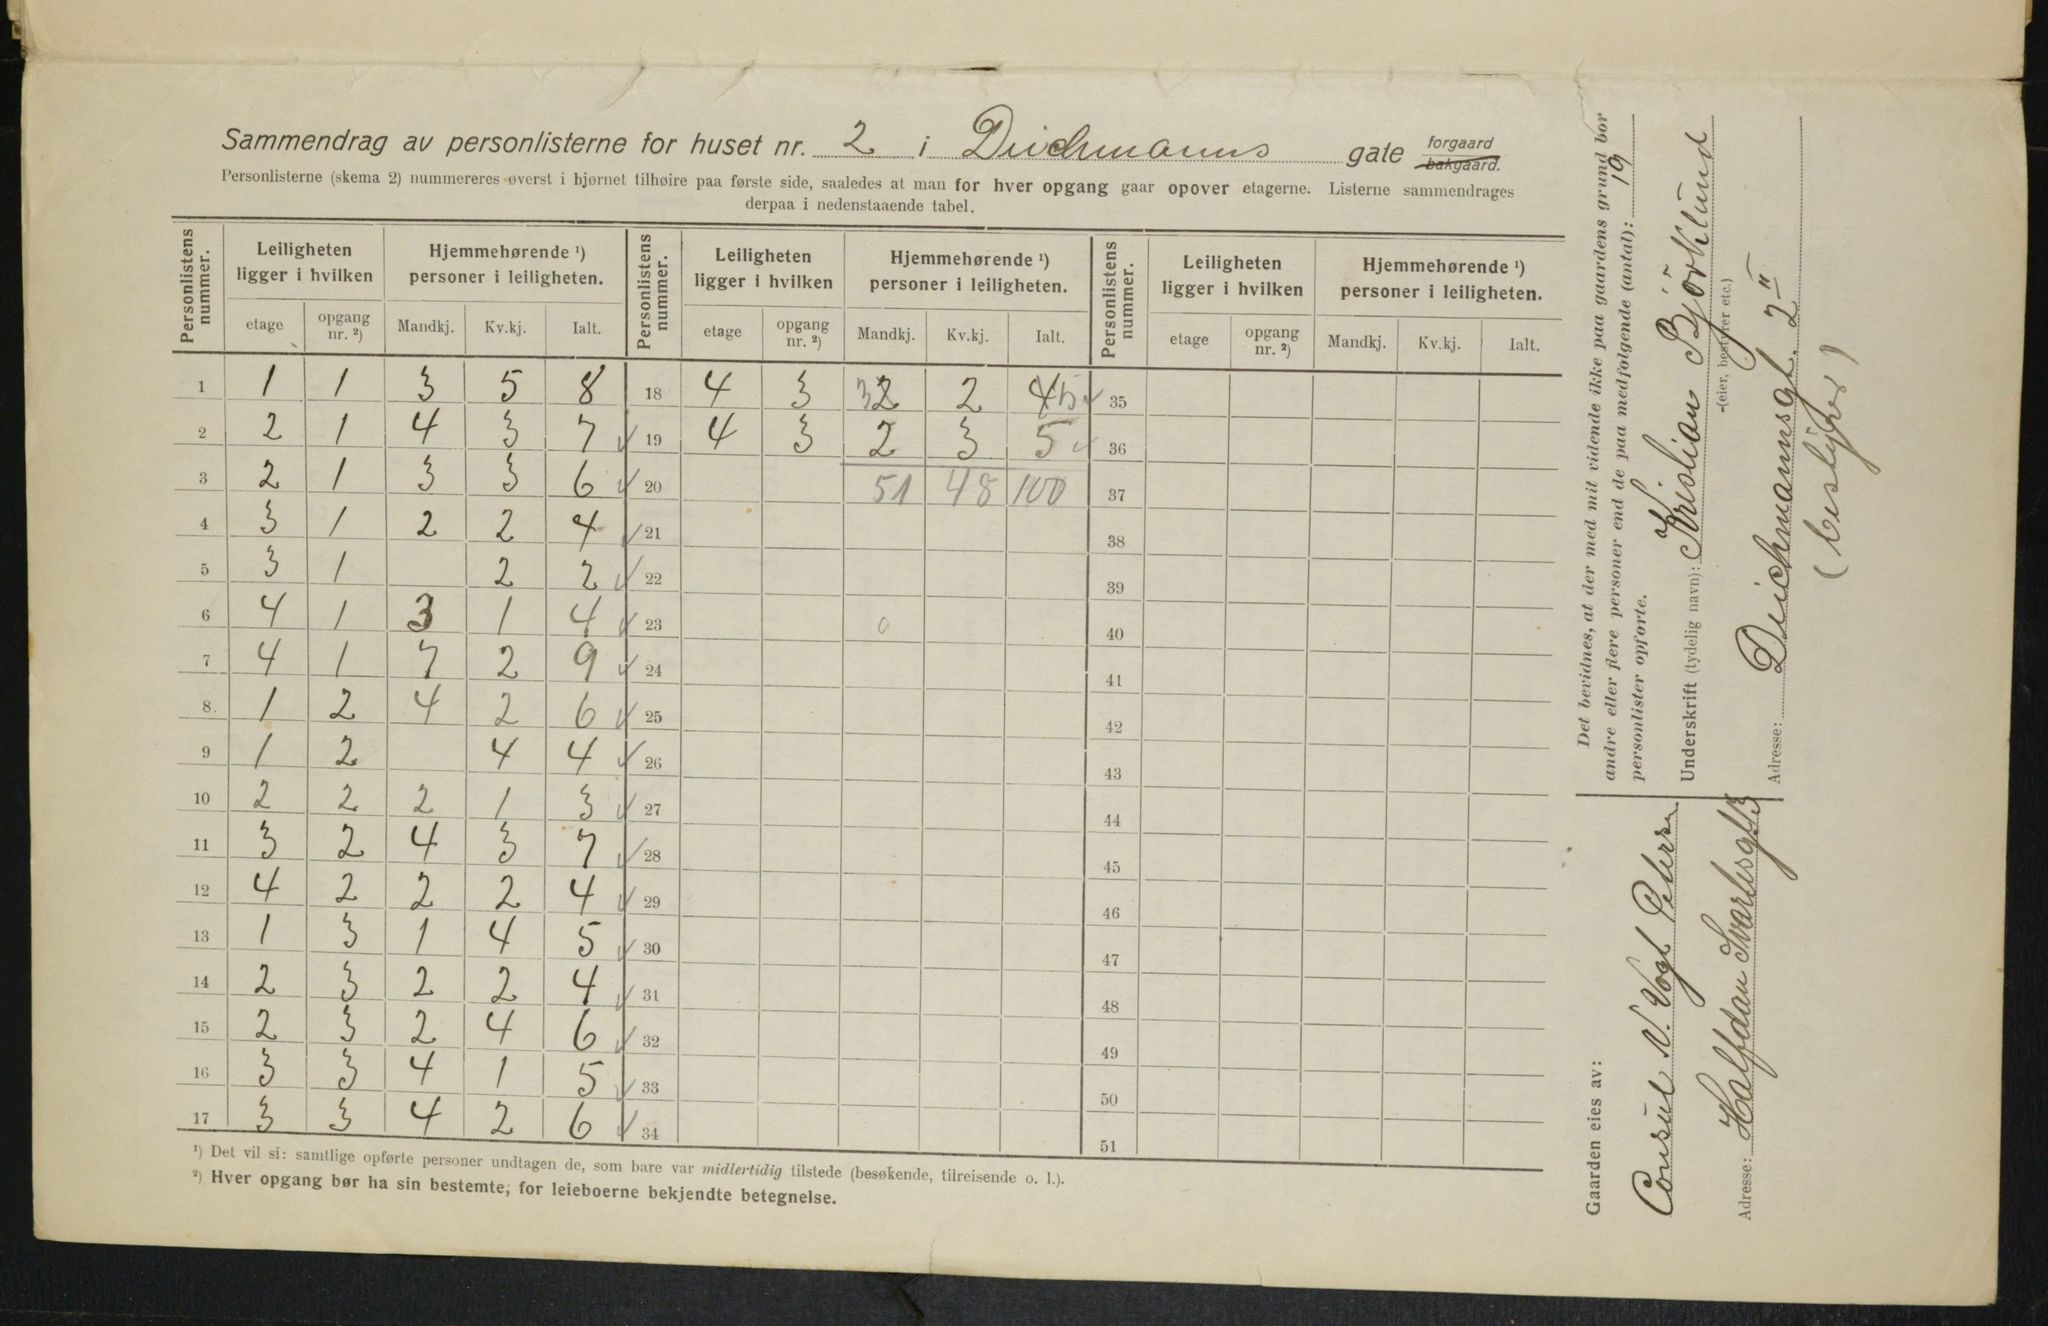 Sammendrag av personlisterne for huset nr. 2 i Deichmanns gate forgaard bakgaard.
Personlisterne (skema 2) nummereres øverst i hjørnet tilhøire paa første side, saaledes at man for hver opgang gaar opover etagerne. Listerne sammendrages
derpaa i nedenstaaende tabel.
Personlistens nummer. | Leiligheten ligger i hvilken | Hjemmehørende ¹) personer i leiligheten. | Personlistens nummer. | Leiligheten ligger i hvilken | Hjemmehørende ¹) personer i leiligheten. | Personlistens nummer. | Leiligheten ligger i hvilken | Hjemmehørende ¹) personer i leiligheten.
etage | opgang nr. ²) | Mandkj. | Kv.kj. | Ialt. | etage | opgang nr. ²) | Mandkj. | Kv.kj. | Ialt. | etage | opgang nr. ²) | Mandkj. | Kv.kj. | Ialt.
1 | 1 | 1 | 3 | 5 | 8 | 18 | 4 | 3 | 3 2 | 2 | 4 5 ✓ | 35
2 | 2 | 1 | 4 | 3 | 7 ✓ | 19 | 4 | 3 | 2 | 3 | 5 ✓ | 36
3 | 2 | 1 | 3 | 3 | 6 ✓ | 20 | | | 51 | 48 | 100 | 37
4 | 3 | 1 | 2 | 2 | 4 ✓ | 21 | 38
5 | 3 | 1 | | 2 | 2 ✓ | 22 | 39
6 | 4 | 1 | 3 | 1 | 4 ✓ | 23 | 40
7 | 4 | 1 | 7 | 2 | 9 ✓ | 24 | 41
8. | 1 | 2 | 4 | 2 | 6 ✓ | 25 | 42
9 | 1 | 2 | | 4 | 4 ✓ | 26 | 43
10 | 2 | 2 | 2 | 1 | 3 ✓ | 27 | 44
11 | 3 | 2 | 4 | 3 | 7 ✓ | 28 | 45
12 | 4 | 2 | 2 | 2 | 4 ✓ | 29 | 46
13 | 1 | 3 | 1 | 4 | 5 ✓ | 30 | 47
14 | 2 | 3 | 2 | 2 | 4 ✓ | 31 | 48
15 | 2 | 3 | 2 | 4 | 6 ✓ | 32 | 49
16 | 3 | 3 | 4 | 1 | 5 ✓ | 33 | 50
17 | 3 | 3 | 4 | 2 | 6 ✓ | 34 | 51
¹) Det vil si: samtlige opførte personer undtagen de, som bare var midlertidig tilstede (besøkende, tilreisende o. l.).
²) Hver opgang bør ha sin bestemte, for leieboerne bekjendte betegnelse.
Det bevidnes, at der med mit vidende ikke paa gaardens grund bor
andre eller flere personer end de paa medfølgende (antal): 19
personlister opførte.
Underskrift (tydelig navn): Kristian Björklund
(eier, bestyrer etc.)
Adresse: Deichmannsgt. 2 II
(bestyrer)
Gaarden eies av:
Consul N. Vogt Petersen
Adresse: Halfdan Svartesgt